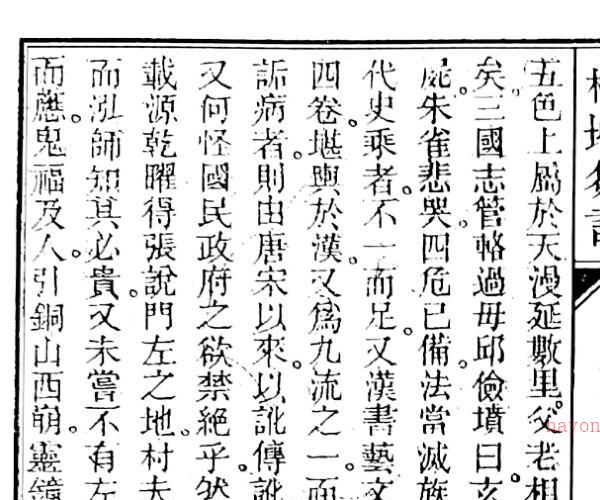 五色上屬於天漫延數里。父老相
矣。三國志管輅過毋邱儉墳曰。玄
屍。朱雀悲哭。四危已備。法當滅族
代史乘者。不一而足。又漢書藝文
四卷。堪輿於漢。又爲九流之一。而
詬病者。則由唐宋以來。以訛傳訛
又何怪國民政府之欲禁絕乎。然
載源乾曜得張說門左之地。村夫
而泓師知其必貴。又未嘗不有左
而應。鬼福及人。引銅山西崩。靈鐘
hayon